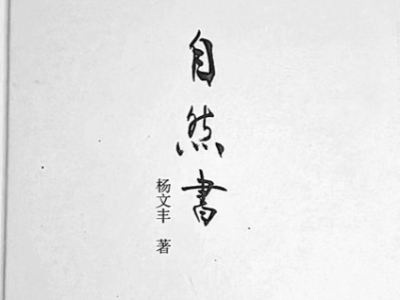 自然書
杨文丰 著